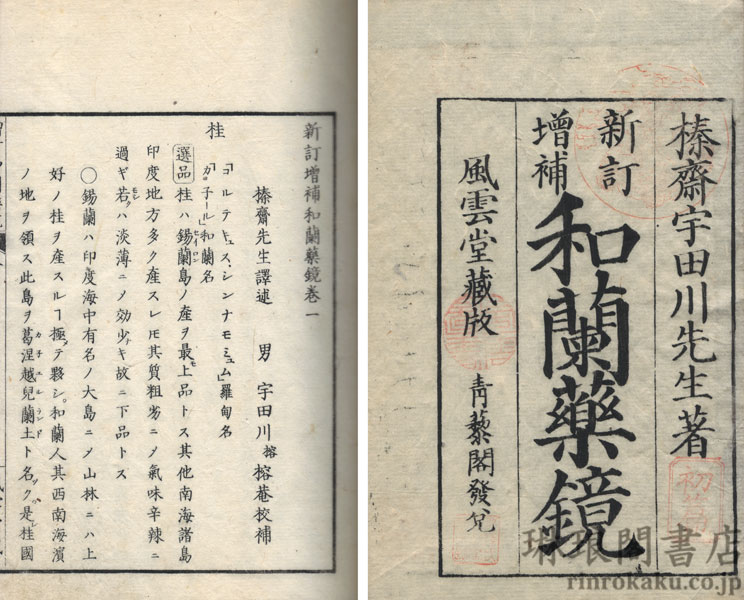 榛齋宇田川先生著
新訂
增補
和蘭藥鏡
風雲堂藏版
青藜閣發兌
初篇
琳琅閣書店
rinrokaku.co.jp
新訂增補和蘭藥鏡卷一
榛齋先生譯述 男 宇田川榕 榕菴校補
桂
「コルテキュス、シンナモミュム」羅甸名
「カ子ール」和蘭名
選品 桂ハ錫蘭島ノ産ヲ最上品トス其他南海諸島
印度地方多ク産スレ𪜈其質粗劣ニ乄氣味辛辣ニ
過ギ若クハ淡薄ニ乄効少ナキ故ニ下品トス
○錫蘭ハ印度海中有名ノ大島ニ乄山林ニハ上
好ノ桂ヲ産スルヿ極テ夥シ和蘭人其西南海濱
ノ地ヲ領ス此島ヲ葛涅越兒蘭土ト名ク是桂國